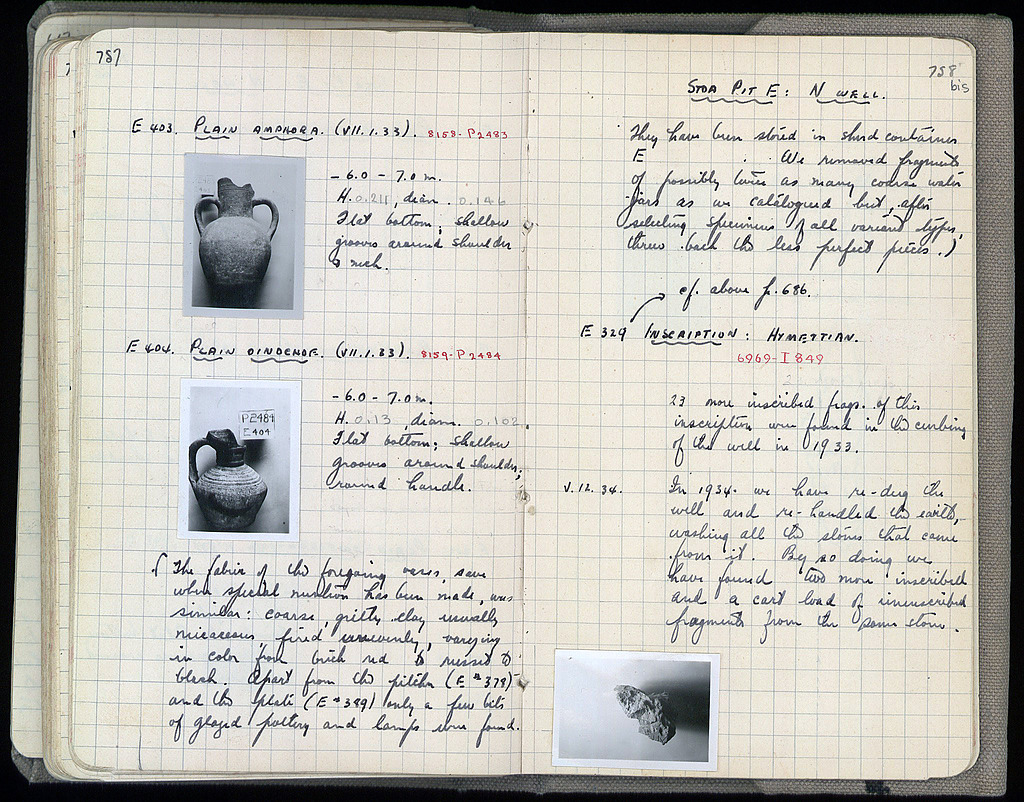 787
E 403. PLAIN AMPHORA. (VII.1.33). 8158-P2483
-6.0 - 7.0 m.
H. 0.211, diam. 0.146
Flat bottom; shallow
grooves around shoulder
& neck.
E 404. PLAIN OINOCHOE. (VII.1.33). 8159-P2484
P2484
E404
-6.0 - 7.0 m.
H. 0.13, diam. 0.102.
Flat bottom; shallow
grooves around shoulder;
round handle.
(The fabric of the foregoing vases, save
when special mention has been made, was
similar: coarse, gritty clay usually
micaceous fired unevenly, varying
in color from brick red to russet to
black. Apart from the pitcher (E #379)
and the plate (E #389) only a few bits
of glazed pottery and lamps were found.
758
bis
STOA PIT E: N WELL.
They have been stored in shed container
E . We removed fragments
of possibly twice as many coarse water
jars as we catalogued but, after
selecting specimens of all variant types,
threw back the less perfect pieces.)
cf. above p. 686.
E 329 INSCRIPTION: HYMETTIAN.
6969-I 849
23 more inscribed frags. of this
inscription were found in the curbing
of the well in 1933.
V.12.34. In 1934 we have re-dug the
well and re-handled the earth,
washing all the stones that came
from it. By so doing we
have found two more inscribed
and a cart load of uninscribed
fragments from the same stone.